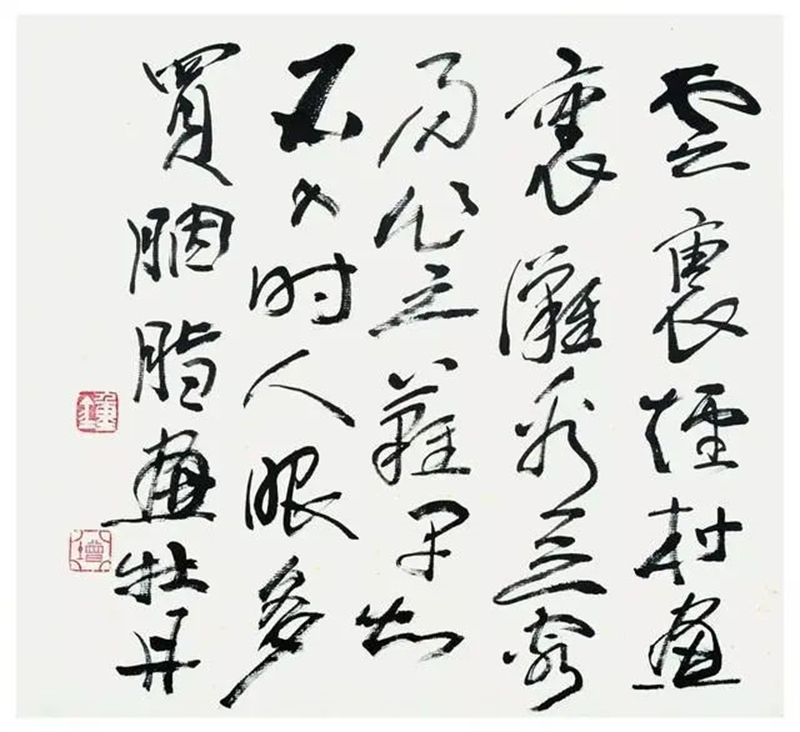 雲裏煙村畫
裏灘看之容
易作之難早知
不入时人眼多
買胭脂畫牡丹